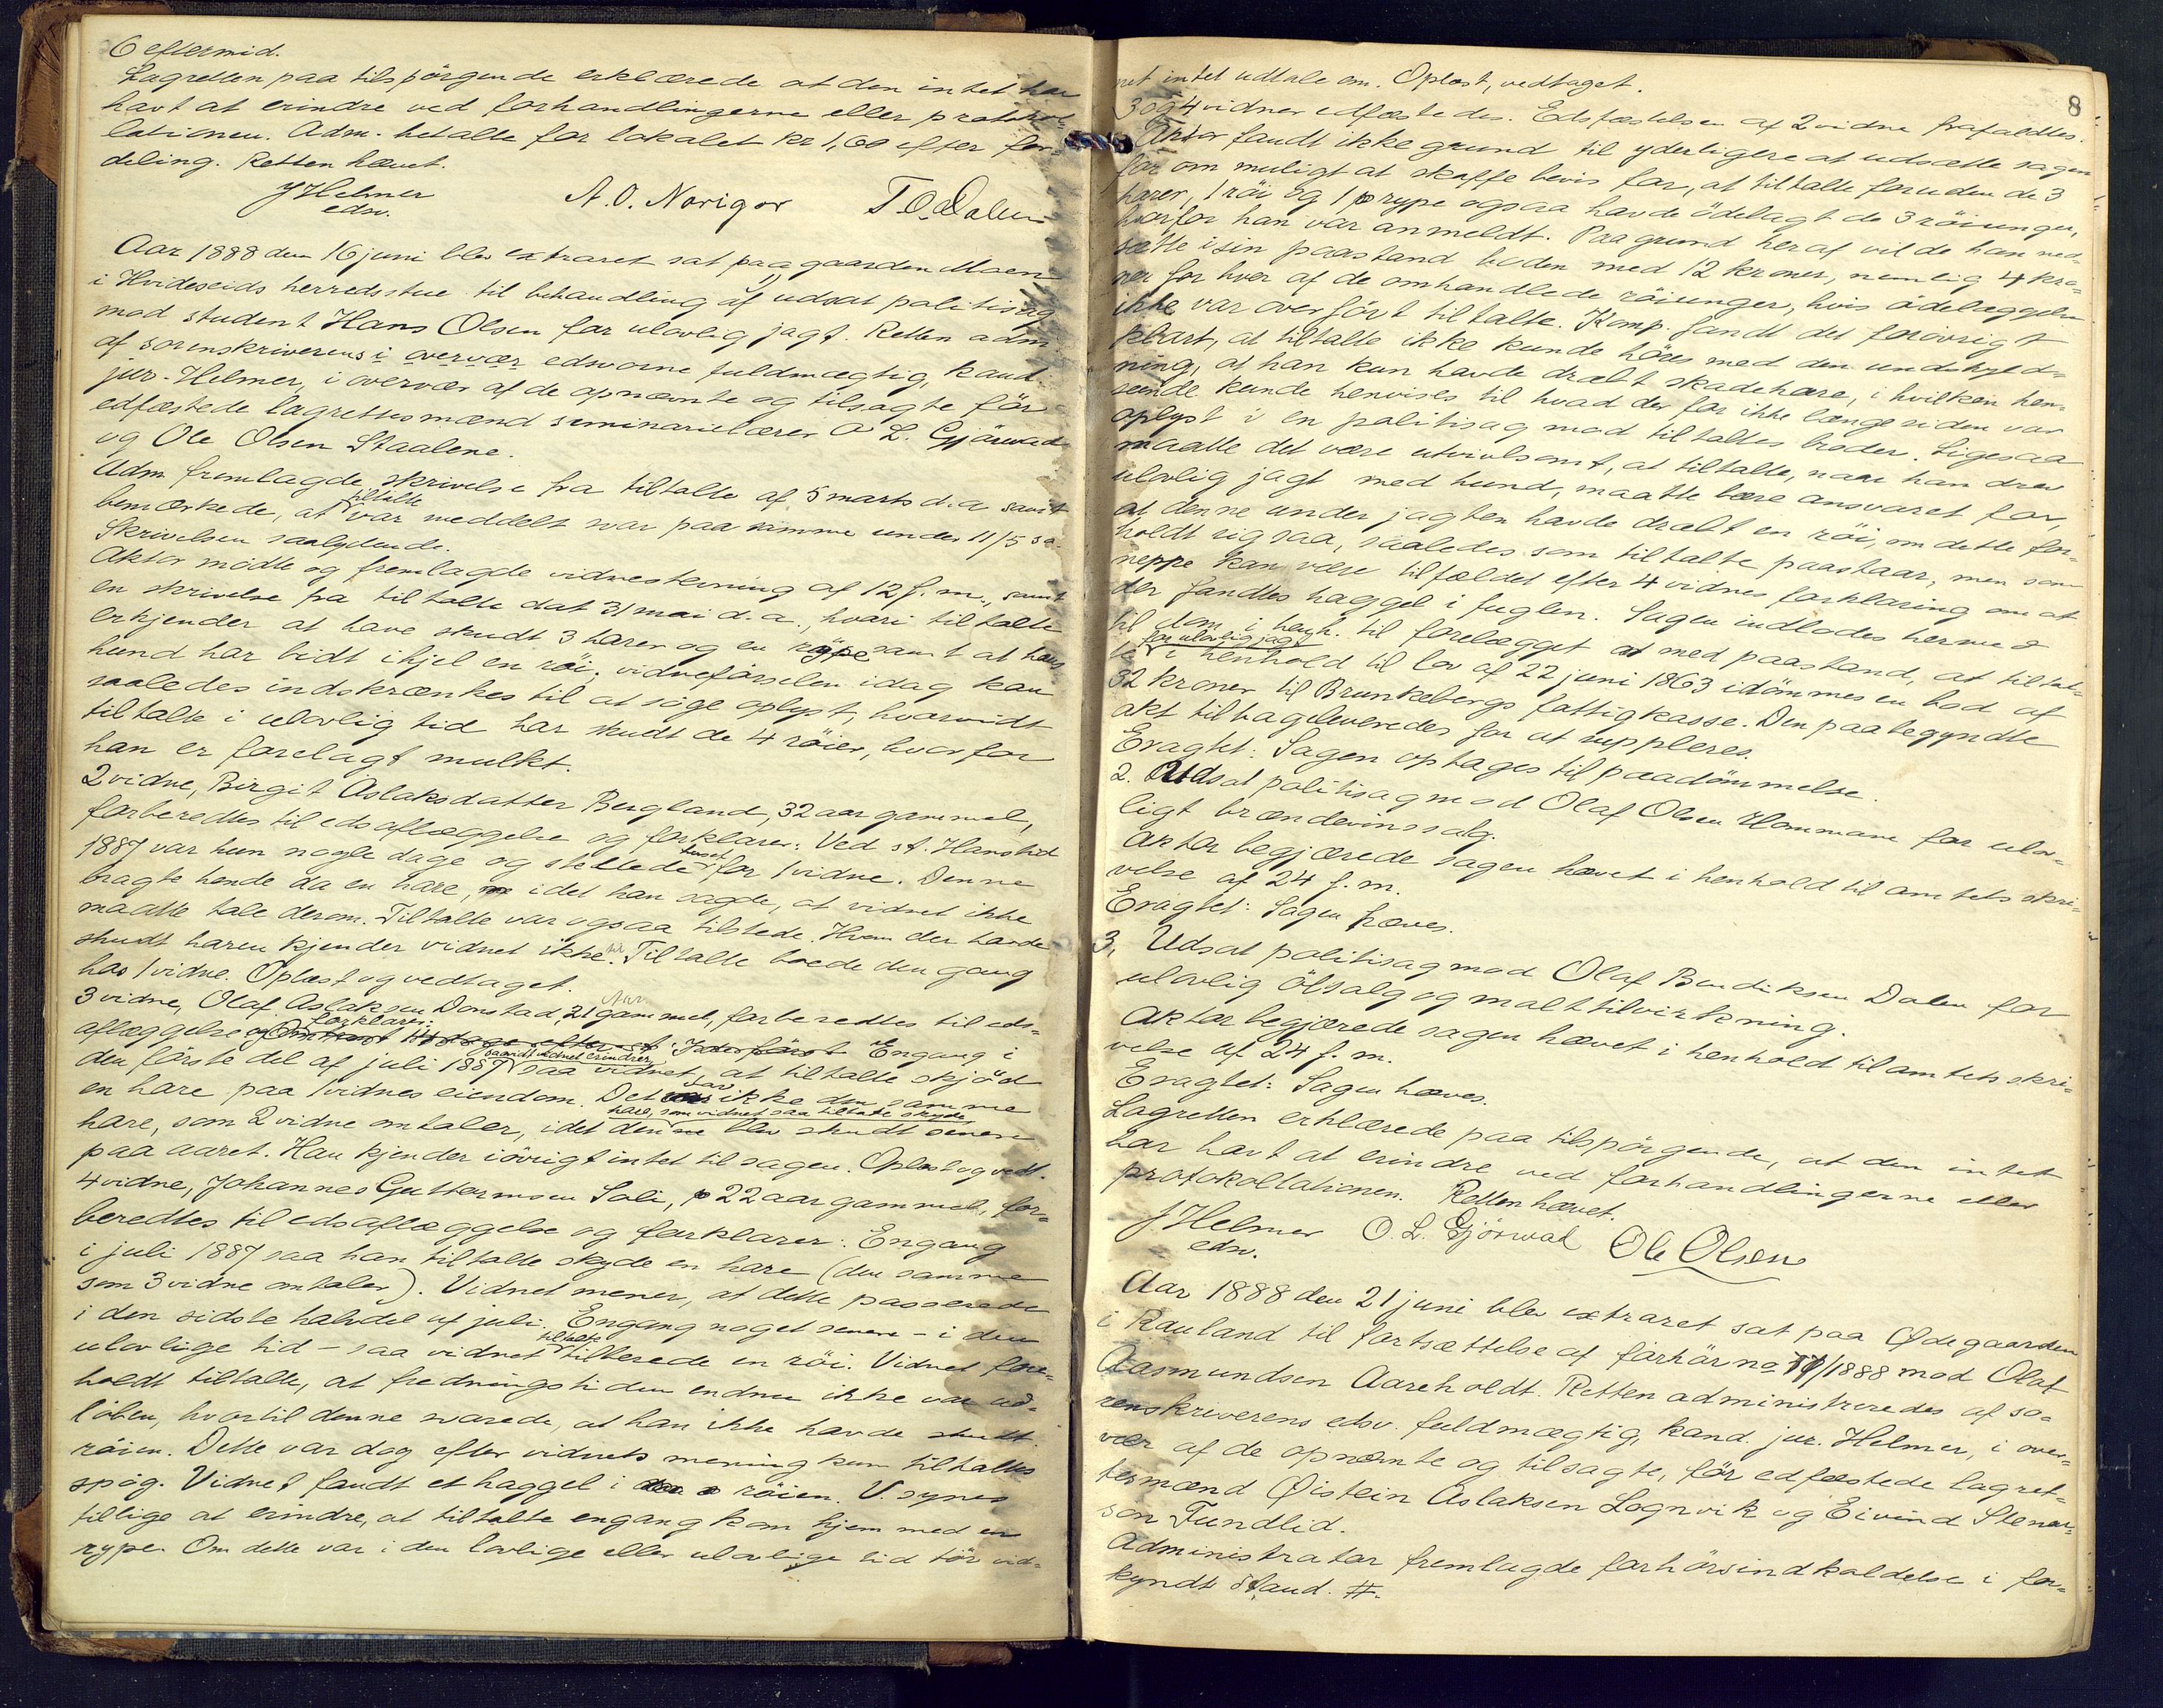 6 eftermid.
Lagretten paa tilspörgende erklærede at den intet har
havt at erindre ved forhandlingerne eller protokol-
lationen. Adm. betalte for lokalet kr 1,60 efter for-
deling. Retten hævet.
J Helmer A. O. Norigor T O. Dalen
edsv.
Aar 1888 den 16 juni blev extraret sat paa gaarden Moen
i Hvideseids herredsstue til behandling af udsat politisag
mod student Hans Olsen for ulovlig jagt. Retten adm.
af sorenskriverens i overvær edsvorne fuldmægtig, kand.
jur. Helmer, i overvær af de opnævnte og tilsagte för
edfæstede lagrettesmænd seminarielærer O L. Gjörwad
og Ole Olsen Staalene.
Adm fremlagde skrivelse fra tiltalte af 5 marts d.a. samt
bemærkede, at tiltalte var meddelt svar paa samme under 11/5 s.a.
Skrivelsen saalydende.
Aktor mödte og fremlagde vidnestevning af 12 f. m., samt
en skrivelse fra tiltalte dat 31 mai d. a., hvori tiltalte
erkjender at have skudt 3 harer og en rype samt at hans
hund har bidt ihjel en röi, vidneförselen idag kan
saaledes indskrænkes til at söge oplyst, hvorvidt
tiltalte i ulovlig tid har skudt de 4 röier, hvorfor
han er forelagt mulkt.
2 vidne, Birgit Aslaksdatter Bergland, 32 aar gammel,
forberedtes til edsaflæggelse og forklarer: Ved st. Hanstid
1887 var hun nogle dage og stellede huset for 1 vidne. Denne
bragte hende da en hare, idet han sagde, at vidnet ikke
maatte tale derom. Tiltalte var ogsaa tilstede. Hvem der havde
skudt haren kjender vidnet ikke til. Tiltalte boede den gang
hos 1 vidne. Oplæst og vedtaget.
3 vidne, Olaf Aslaksen Donstad, 21 aar gammel, forberedtes til eds-
aflæggelse og forklarer: Engang i
den förste del af juli 1887 saavidt vidnet erindrer, saa vidnet, at tiltalte skjöd
en hare paa 1 vidnes eiendom. Det var ikke den samme
hare, som 2 vidne omtaler, idet den hare, som vidnet saa tiltalte skyde blev skudt senere
paa aaret. Han kjender iövrigt intet til sagen. Oplæst og vedt.
4 vidne, Johannes Guttormsen Soli, 22 aar gammel, for-
beredtes til edsaflæggelse og forklarer: Engang
i juli 1887 saa han tiltalte skyde en hare (den samme
som 3 vidne omtaler). Vidnet mener, at dette passerede
i den sidste halvdel af juli. Engang noget senere - i den
ulovlige tid - saa vidnet tiltalte tilberede en röi. Vidnet fore-
holdt tiltalte, at fredningstiden endnu ikke var ud-
löben, hvortil denne svarede, at han ikke havde skudt
röien. Dette var dog efter vidnets mening kun tiltaltes
spög. Vidnet fandt et haggel i röien. V. synes
tillige at erindre, at tiltalte engang kom hjem med en
rype. Om dette var i den lovlige eller ulovlige tid tör vid-
8
net intet udtale om. Oplæst, vedtaget.
3 og 4 vidner edfæstedes. Edsfæstelsen af 2 vidne frafaldtes.
Aktor fandt ikke grund til yderligere at udsætte sagen
for om muligt at skaffe bevis for, at tiltalte foruden de 3
harer, 1 röi og 1 rype ogsaa havde ödelagt de 3 röiunger,
hvorfor han var anmeldt. Paa grund heraf vilde han ned-
sætte i sin paastand boden med 12 kroner, nemlig 4 kro-
ner for hver af de omhandlede röiunger, hvis ödelæggelse
ikke var overfört tiltalte. Komp. fandt det forövrigt
klart, at tiltalte ikke kunde höres med den undskyld-
ning, at han kun havde dræbt skadehare, i hvilken hen-
seende kunde henvises til hvad der for ikke længe siden var
oplyst i en politisag mod tiltaltes broder. Ligesaa
maatte det være utvivlsomt, at tiltalte, naar han drev
ulovlig jagt med hund, maatte bære ansvaret for,
at denne under jagten havde dræbt en röi, om dette for-
holdt sig saa, saaledes som tiltalte paastaar, men som
neppe kan være tilfældet efter 4 vidnes forklaring om at
der fandtes haggel i fuglen. Sagen indlodes hermed
til dom i henh. til forelægget med paastand, at tiltal-
te for ulovlig jagt i henhold til lov af 22 juni 1863 idömmes en bod af
32 kroner til Brunkebergs fattigkasse. Den paabegyndte
akt tilbageleveredes for at suppleres.
Eragtet: Sagen optages til paadömmelse.
2. Udsat politisag mod Olaf Olsen Hommane for ulov-
ligt brændevinssalg.
Aktor begjærede sagen hævet i henhold til amtets skri-
velse af 24 f. m.
Eragtet: Sagen hæves.
3, Udsat politisag mod Olaf Bendiksen Dalen for
ulovlig ölsalg og malttilvirkning.
Aktor begjærede sagen hævet i henhold til amtets skri-
velse af 24 f. m.
Eragtet: Sagen hæves.
Lagretten erklærede paa tilspörgende, at den intet
har havt at erindre ved forhandlingerne eller
protokollationen. Retten hævet.
J Helmer O. L. Gjörwad Ole Olsen
edsv.
Aar 1888 den 21 juni blev extraret sat paa Ødegaarden
i Rauland til fortsættelse af forhör no 17/1888 mod Olaf
Aasmundsen Aareholdt. Retten administreredes af so-
renskriverens edsv. fuldmægtig, kand. jur. Helmer, i over-
vær af de opnævnte og tilsagte, för edfæstede lagret-
tesmænd Øistein Aslaksen Lognvik og Eivind Stenar-
son Tundlid.
Administrator fremlagde forhörsindkaldelse i for-
kyndt stand. #.